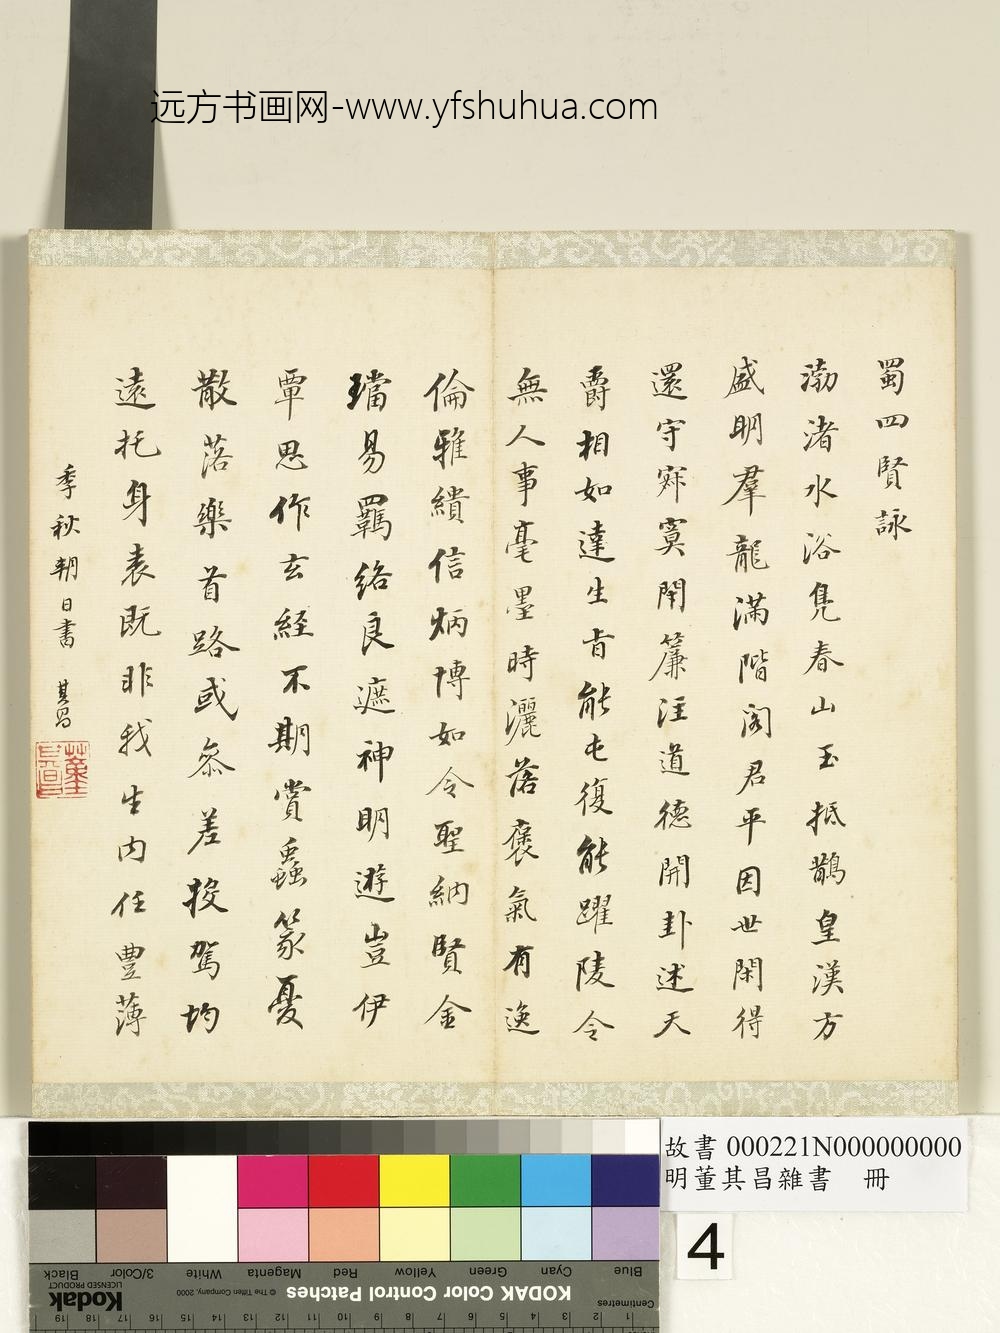 远方书画网-www.yfshuhua.com
蜀四賢詠
渤渚水浴凫春山玉抵鵲皇漢方
盛明羣龍滿階閣君平因世閑得
還守寂寞閇簾注道德開卦述天
爵相如達生旨能屯復能躍陵令
無人事毫墨時灑落褒氣有逸
倫雅繢信炳博如令聖納賢金
璫易羈絡良遮神明遊豈伊
覃思作玄經不期賞蟲篆憂
散落樂首路或叅差投駕均
遠托身表既非我生内任豐薄
季秋朔日書 其昌
董其昌
故書 000221N000000000
明董其昌雜書 冊
4
Blue Cyan Green Yellow Red Magenta White 3/Color Black
KODAK Color Control Patches
© The Tiffen Company, 2000
Kodak
LICENSED PRODUCT
Centimetres
1 2 3 4 5 6 7 8 9 10 11 12 13 14 15 16 17 18 19